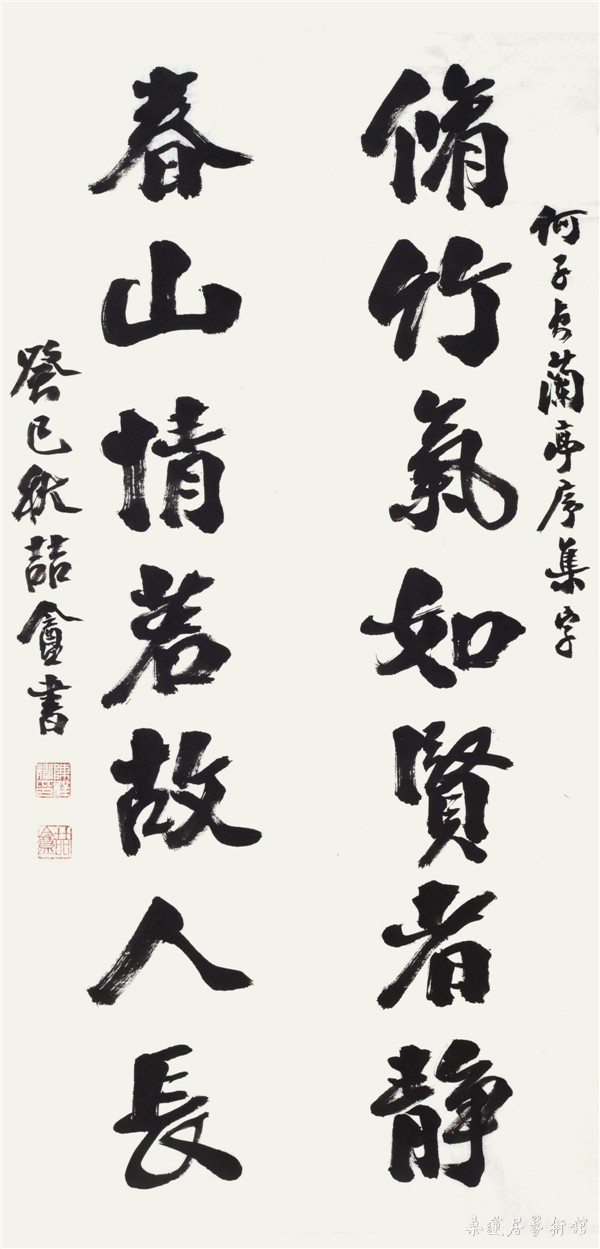 何子貞蘭亭序集字
脩竹氣如賢者静
春山情若故人長
癸巳秋喆盦書
喆盦
桑蓮居藝術館